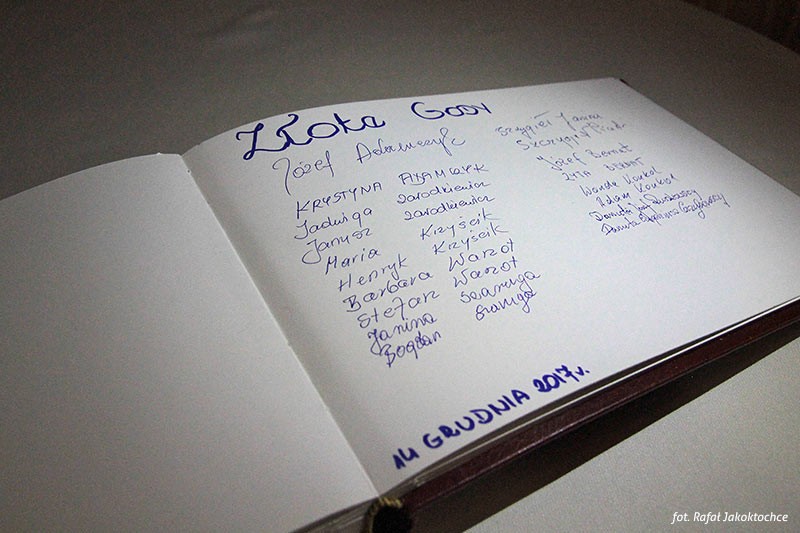 Złote GODY
Józef Adamczyk
KRYSTYNA ADAMCZYK
Jadwiga Zarodkiewicz
Janusz Zarodkiewicz
Maria Krzyścik
Henryk Krzyścik
Barbara Warot
Stefan Warot
Janina Szaruga
Bogdan Szaruga
Szczygieł Janina
Szczygieł
Józef Bernat
ZYTA BERNAT
Wanda Konkol
Adam Konkol
Danuta
Danuta
14 GRUDNIA 2017r.
fot. Rafał Jakoktochce